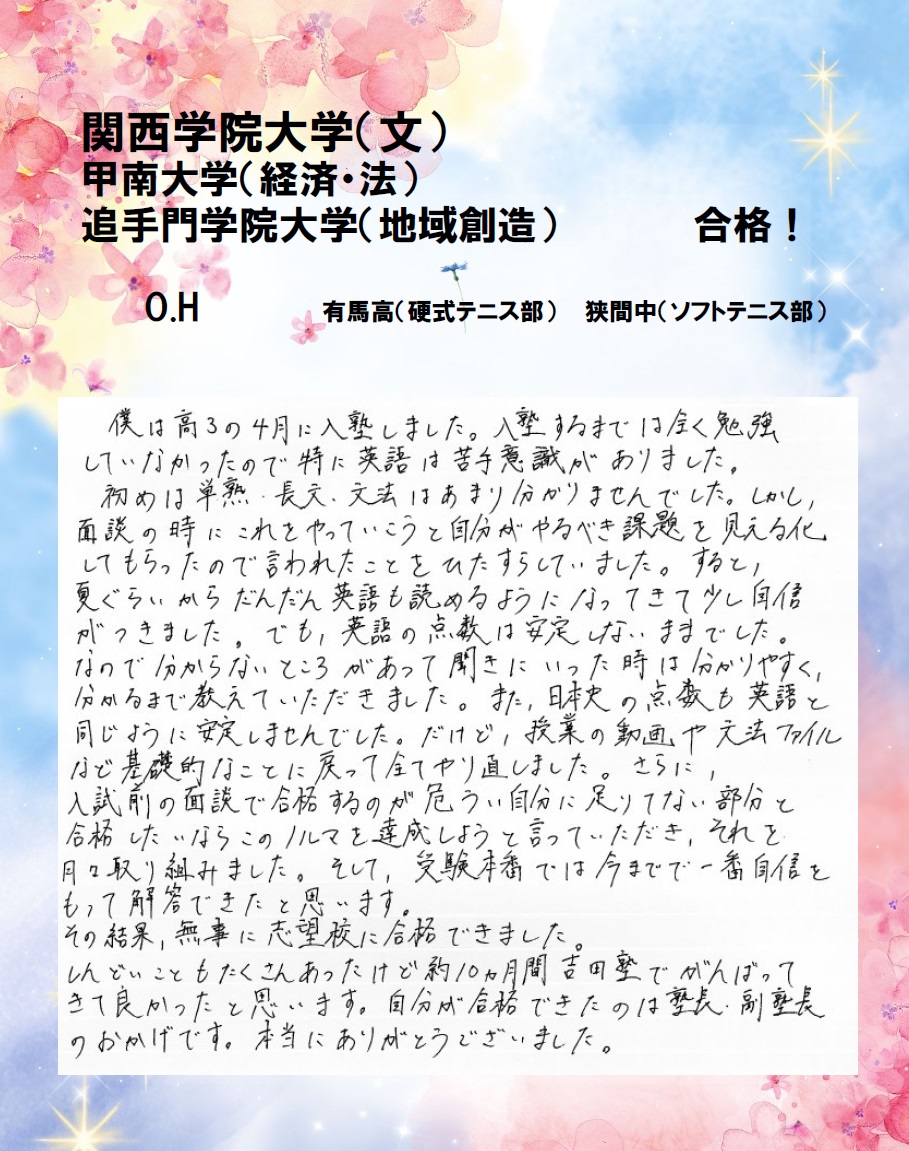 関西学院大学(文)
甲南大学(経済・法)
追手門学院大学(地域創造) 合格!
O.H 有馬高(硬式テニス部) 狭間中(ソフトテニス部)
僕は高3の4月に入塾しました。入塾するまでは全く勉強
していなかったので特に英語は苦手意識がありました。
初めは単熟・長文・文法はあまり分かりませんでした。しかし,
面談の時にこれをやっていこうと自分がやるべき課題を見える化
してもらったので言われたことをひたすらしていました。すると,
夏ぐらいからだんだん英語も読めるようになってきて少し自信
がつきました。でも,英語の点数は安定しないままでした。
なので分からないところがあって聞きにいった時は分かりやすく,
分かるまで教えていただきました。また,日本史の点数も英語と
同じように安定しませんでした。だけど,授業の動画や文法ファイル
など基礎的なことに戻って全てやり直しました。さらに,
入試前の面談で合格するのが危うい自分に足りてない部分と
合格したいならこのノルマを達成しようと言っていただき,それを
月々取り組みました。そして,受験本番では今までで一番自信を
もって解答できたと思います。
その結果,無事に志望校に合格できました。
しんどいこともたくさんあったけど約10ヵ月間吉田塾でがんばって
きて良かったと思います。自分が合格できたのは塾長・副塾長
のおかげです。本当にありがとうございました。